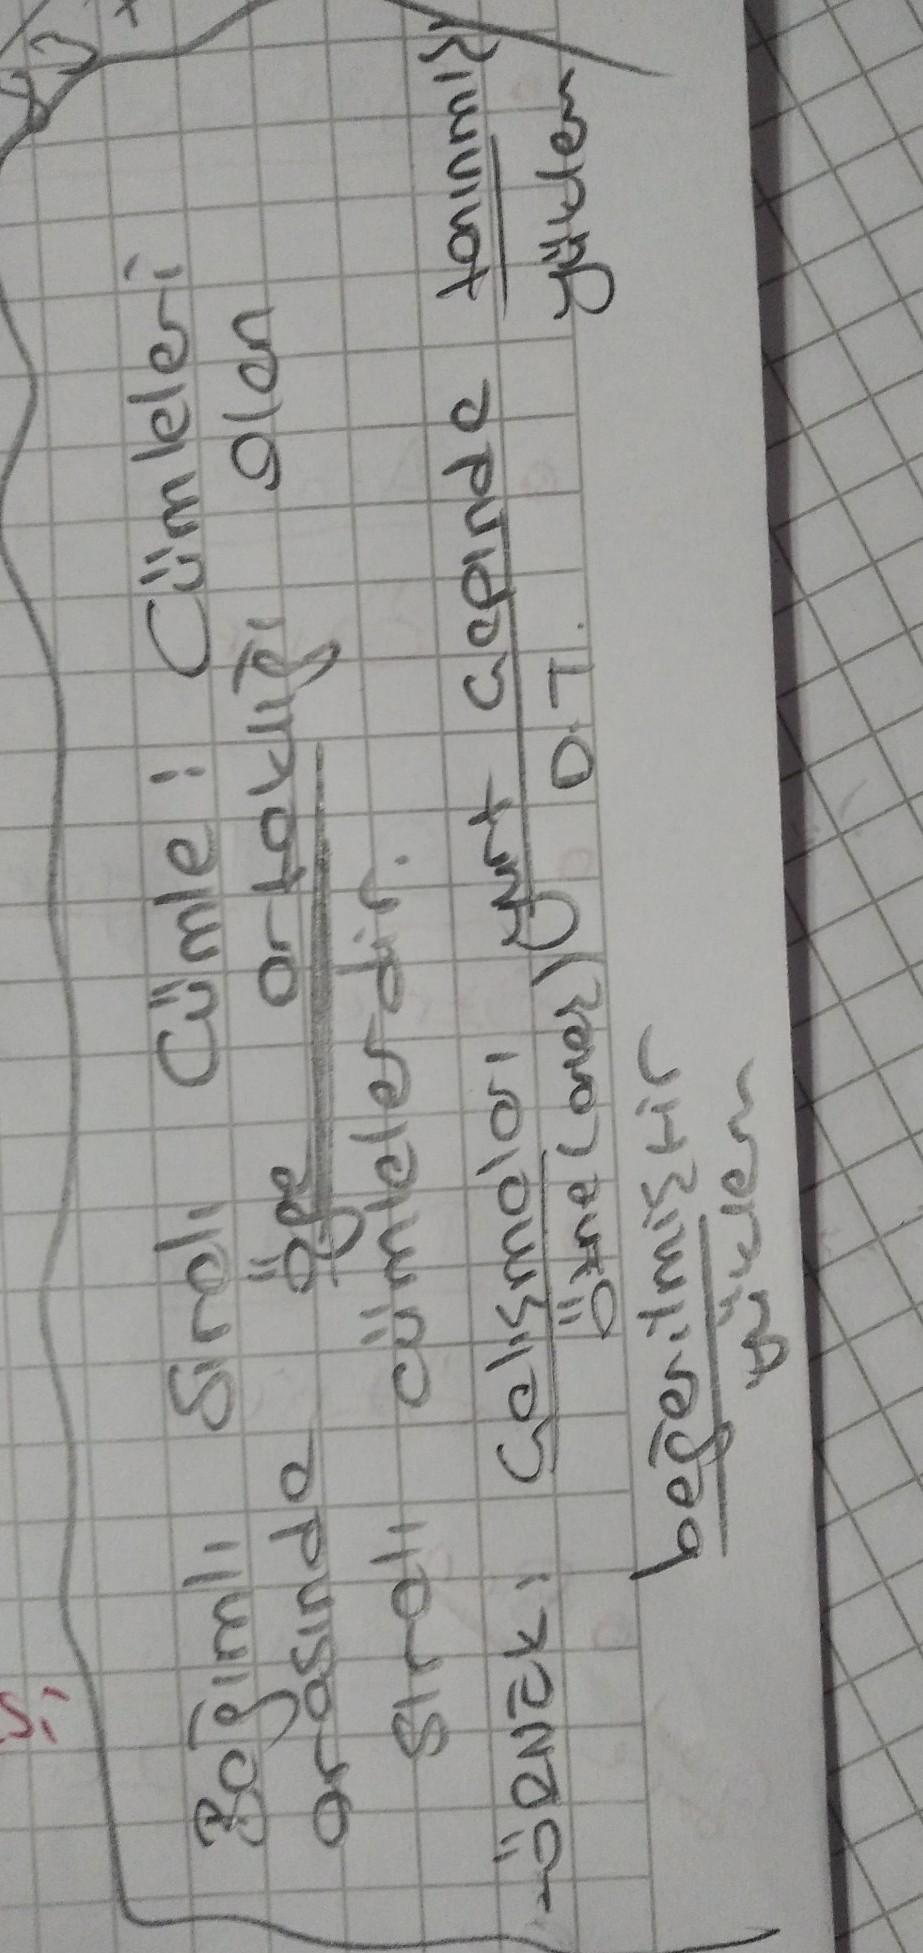 s:
Bağımlı Sıralı Cümle: Cümleleri
arasında öğe ortaklığı olan
sıralı cümlelerdir.
-ÖRNEK: Çalışmaları yurt çapında tanınmış
özne (ortak) D.T. yüklem
beğenilmiştir
yüklem